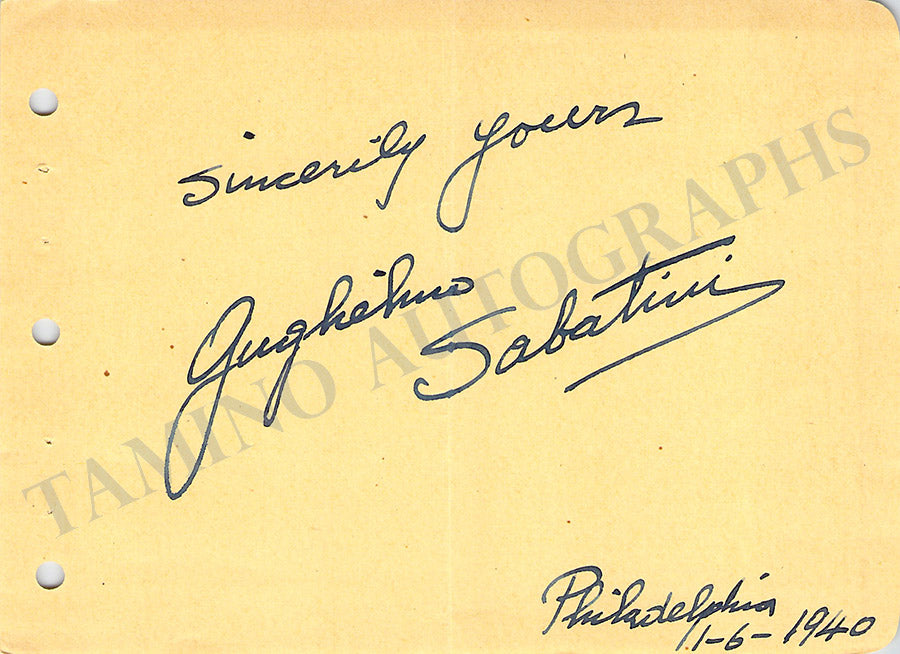 Sincerily yours
Guglielmo
Sabatini
TAMINO AUTOGRAPHS
Philadelphia
1-6-1940